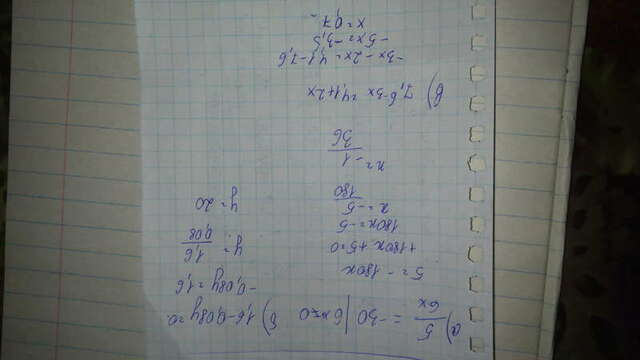 а) 5/6x = -30 | 6x≠0
5 = -180x
+180x+5=0
180x=-5
x = -5/180
x = -1/36
б) 1,6-0,08y=0.
-0,08y=1,6
y = 1,6/0,08
y = 20
в) 7,6-3x=4,1+2x
-3x-2x=4,1-7,6
-5x=-3,5
x=0,7